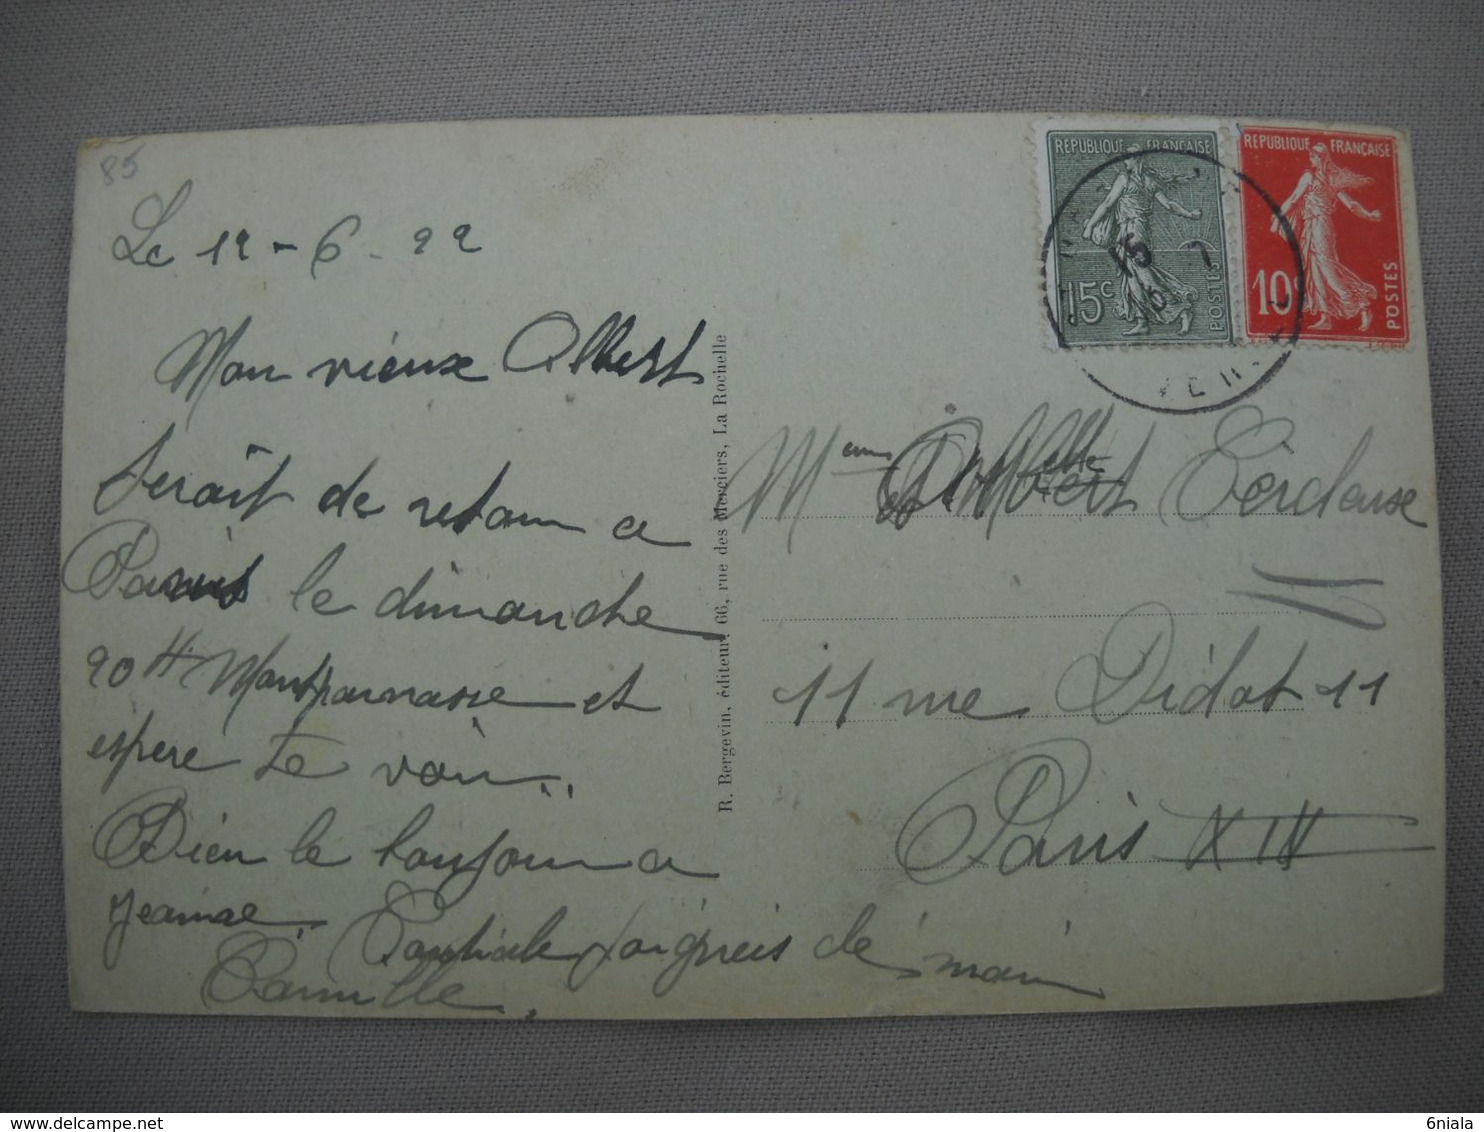 85
Le 12-6-22
Mon vieux Albert
serait de retour a
Paris le dimanche
20 H Montparnasse et
espere te voir..
Bien le bonjour a
Jeanne. Cordiale poignées de main
Camille
R. Bergevin, éditeur, 66, rue des Merciers, La Rochelle
RÉPUBLIQUE FRANÇAISE
15c
POSTES
RÉPUBLIQUE FRANÇAISE
10c
POSTES
15
Albert
11 rue Didot 11
Paris XIV
6niala